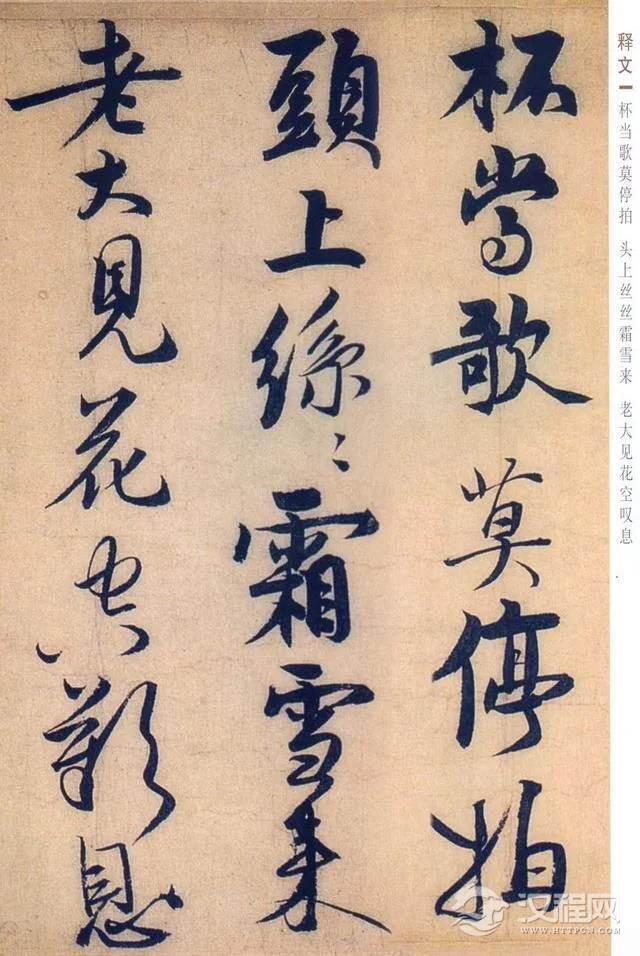 释文
杯当歌莫停拍 头上丝丝霜雪来 老大见花空叹息
杯當歌莫停拍
頭上絲〻霜雪来
老大見花空歎息
汉程网
WWW.HTTPCN.COM